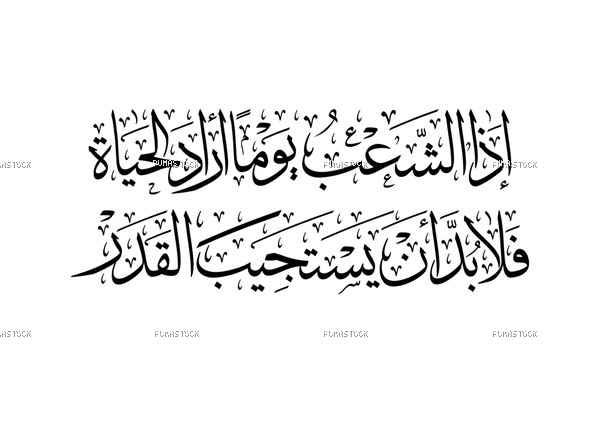 إِذَا الشَّعْبُ يَوْمًا أَرَادَ الْحَيَاةَ
فَلَا بُدَّ أَنْ يَسْتَجِيبَ الْقَدَرْ
FUMASTOCK FUMASTOCK FUMASTOCK FUMASTOCK
FUMASTOCK FUMASTOCK FUMASTOCK FUMASTOCK